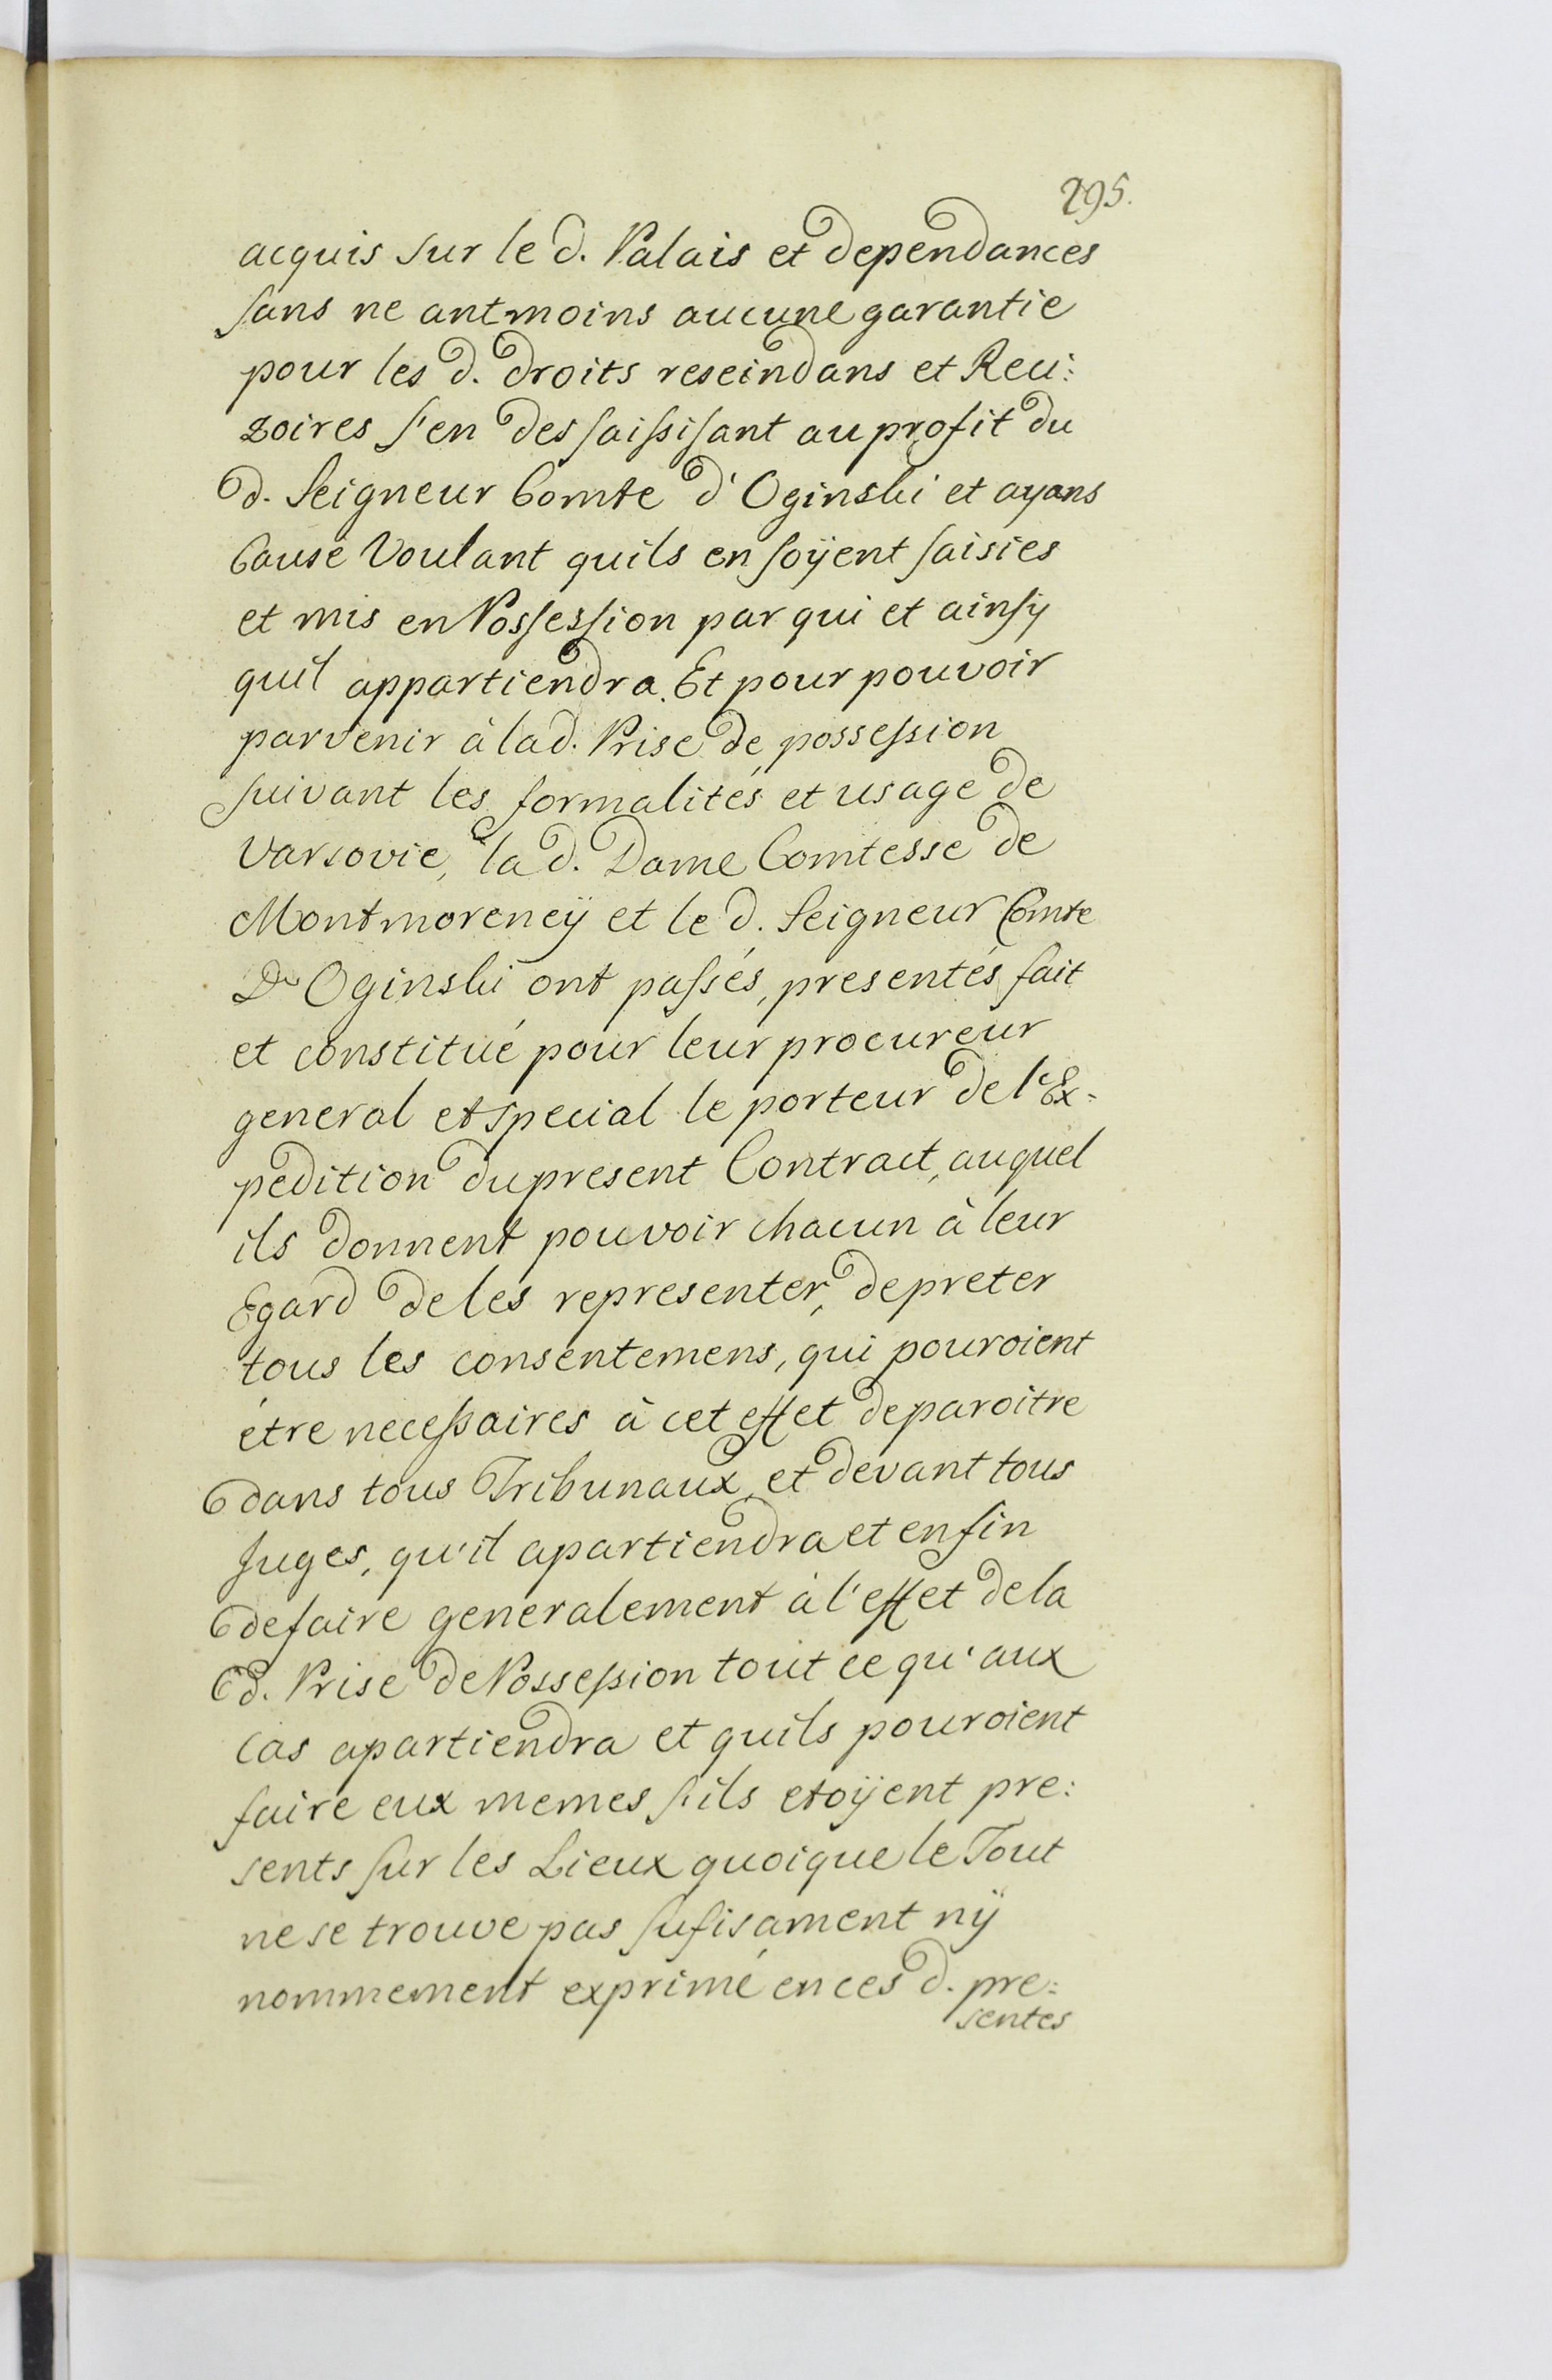 295.
acquis sur le d. Palais et dependances
sans ne antmoins aucune garantie
pour les d. droits reseindans et Reci:
zoires s'en dessaissisant au profit du
d. Seigneur Comte d'Oginski et ayans
Cause Voulant quils en soÿent saisies
et mis en Possession par qui et ainsÿ
quil appartiendra. Et pour pouvoir
parvenir à la d. Prise de possession
suivant les formalités et usage de
Varsovie, la d. Dame Comtesse de
Montmorencÿ et le d. Seigneur Comte
D'Oginski ont passés, presentés, fait
et constitué pour leur procureur
general et special le porteur de l'Ex-
pedition du present Contract, auquel
ils donnent pouvoir chacun à leur
Egard de les representer, de preter
tous les consentemens, qui pouroient
étre necessaires à cet effet de paroitre
dans tous Tribunaux, et devant tous
Juges, qu'il apartiendra et enfin
de faire generalement à l'effet de la
d. Prise de Possession tout ce qu'aux
cas apartiendra et quils pouroient
faire eux memes s'ils etoÿent pre:
sents sur les Lieux quoique le Tout
ne se trouve pas sufisament nÿ
nommement exprimé en ces d. pre:
sentes